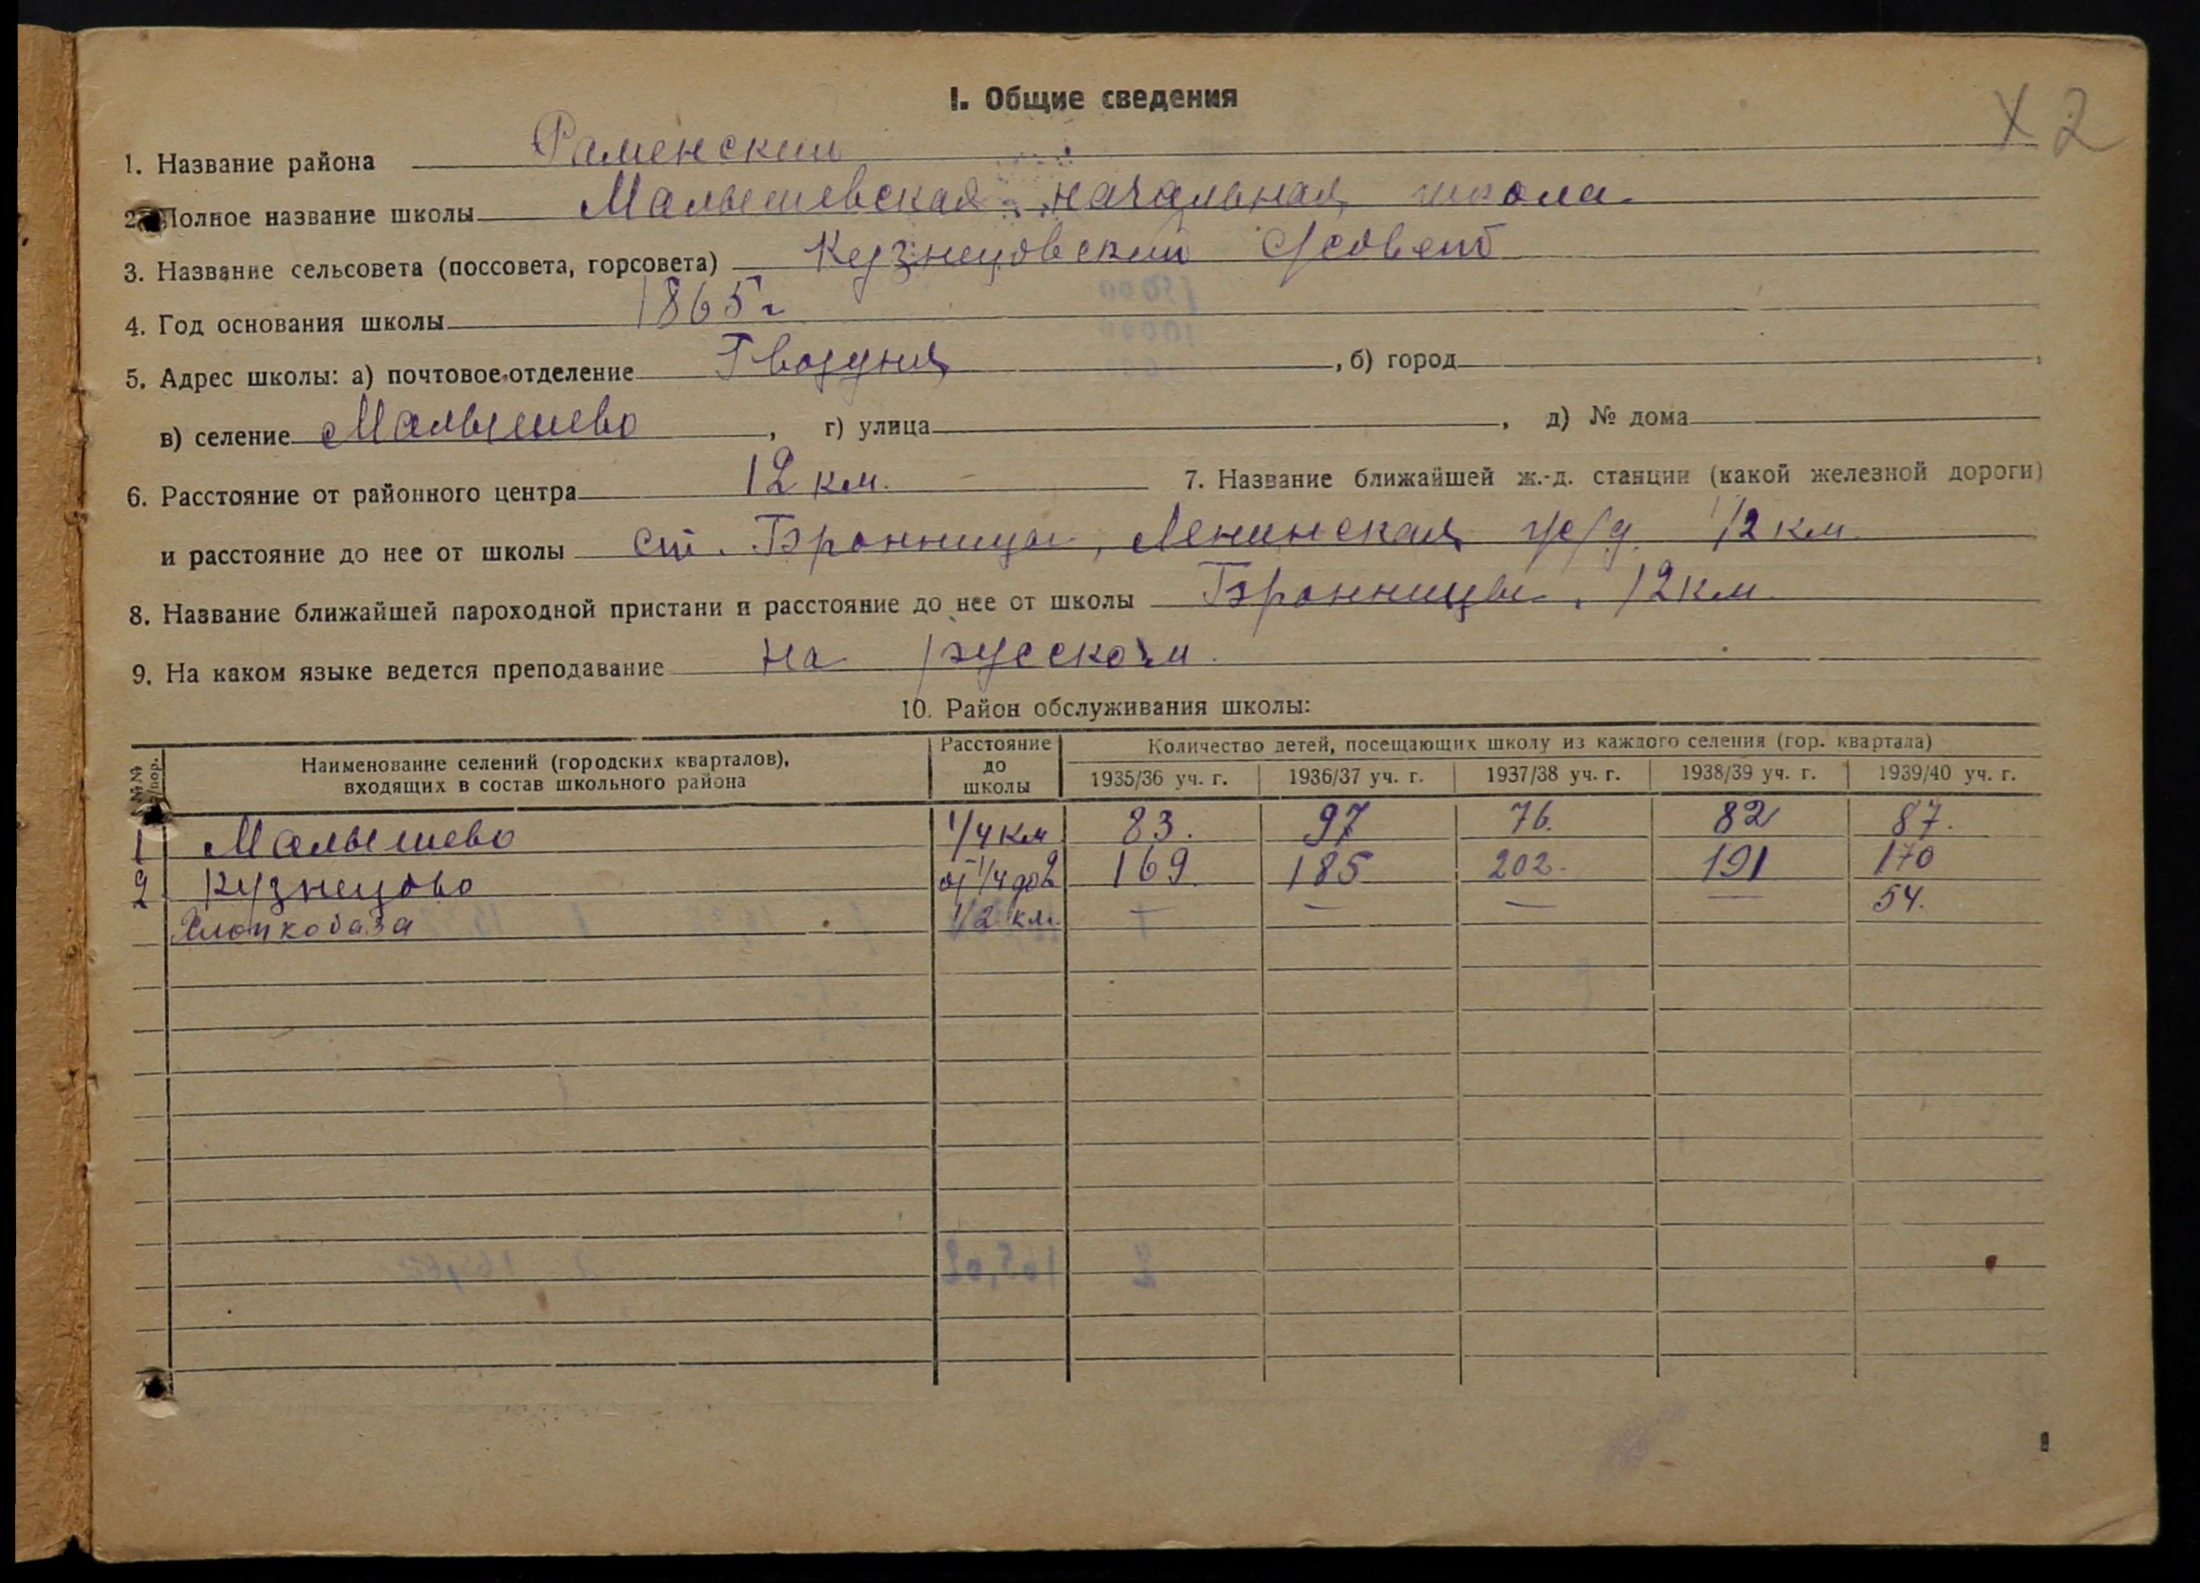 I. Общие сведения
X 2
1. Название района Раменский
2. Полное название школы Малышевская начальная школа
3. Название сельсовета (поссовета, горсовета) Кузнецовский с/совет
4. Год основания школы 1865 г
5. Адрес школы: а) почтовое отделение Гвоздня, б) город
в) селение Малышево, г) улица , д) № дома
6. Расстояние от районного центра 12 км. 7. Название ближайшей ж.-д. станции (какой железной дороги)
и расстояние до нее от школы ст. Бронницы, Ленинская ж/д. 12 км.
8. Название ближайшей пароходной пристани и расстояние до нее от школы Бронницы, 12 км.
9. На каком языке ведется преподавание на русском.
10. Район обслуживания школы:
№№ п/пор. Наименование селений (городских кварталов), входящих в состав школьного района Расстояние до школы Количество детей, посещающих школу из каждого селения (гор. квартала)
1935/36 уч. г. 1936/37 уч. г. 1937/38 уч. г. 1938/39 уч. г. 1939/40 уч. г.
1 Малышево 1/4 км 83. 97 76. 82 87.
2 Кузнецово от 1/4 до 2 169 185 202. 191 170
Хлопкобаза 1/2 км. — — — — 54.